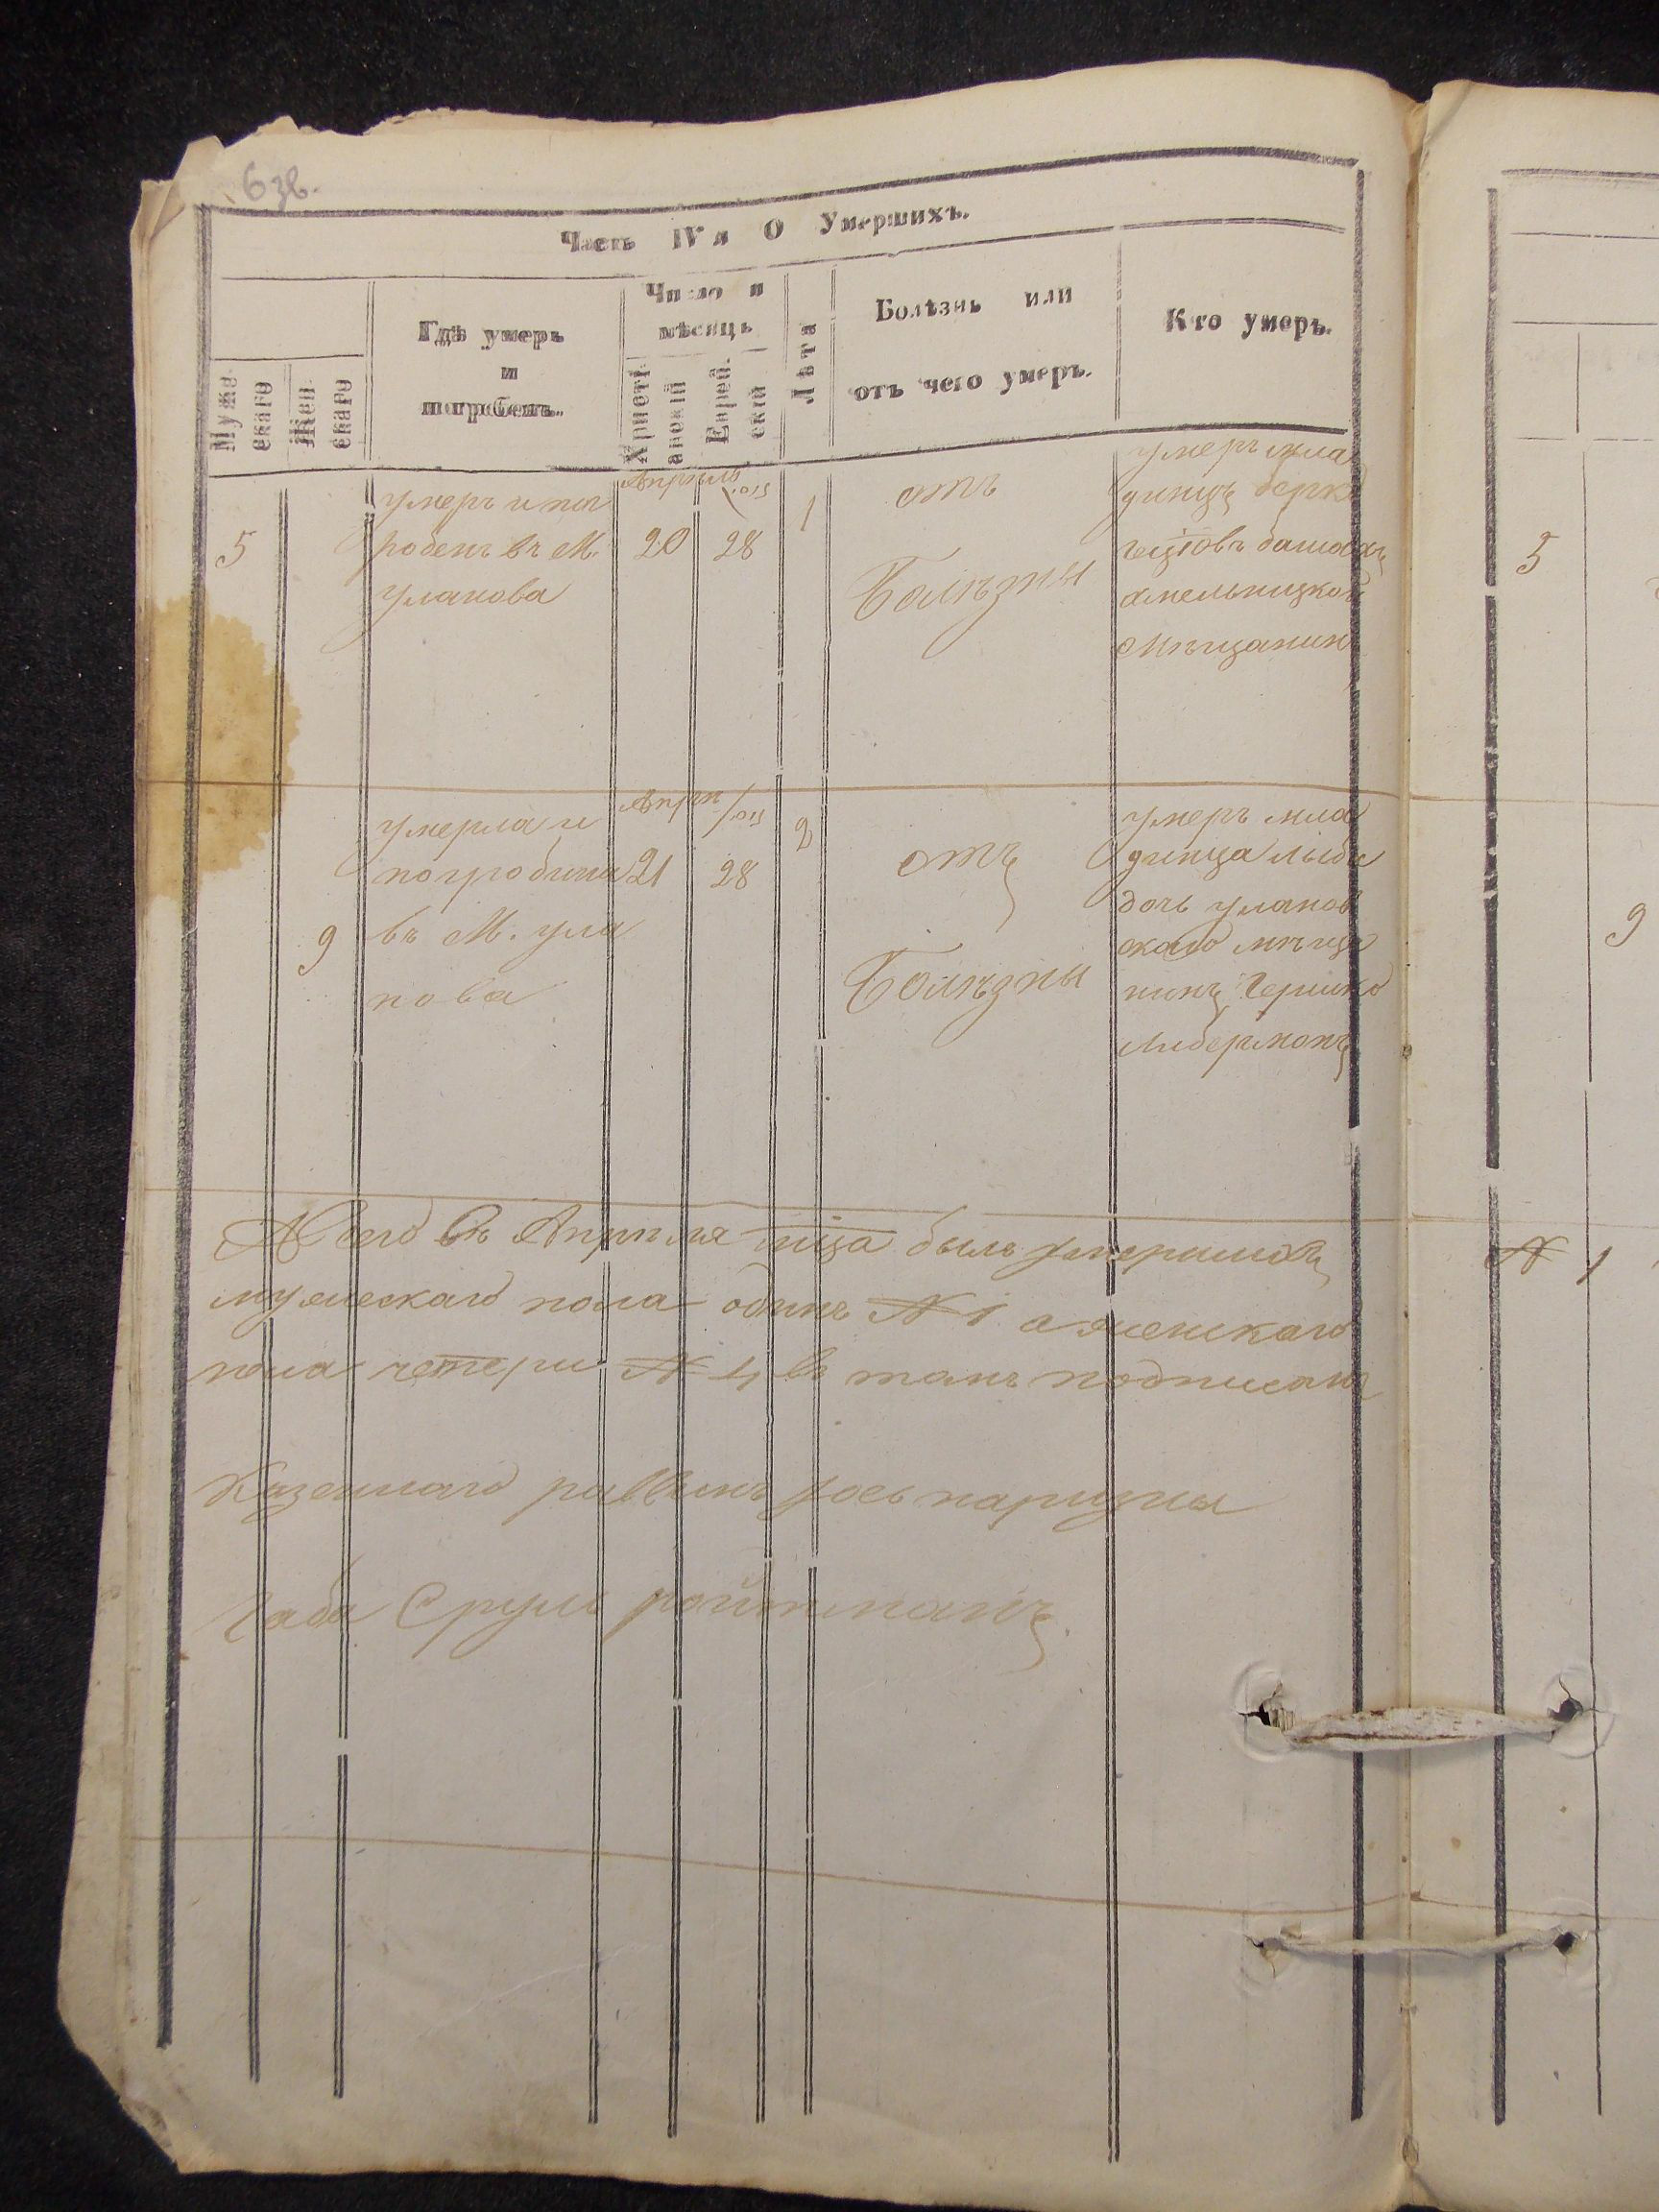 6 зв.
Часть IV я О Умершихъ.
Муже
скаго
Жен
скаго
Гдѣ умеръ
и
погребенъ.
Число и
мѣсяцъ
Христі
анскій
Еврей
скій
Лѣта
Болѣзнь или
отъ чего умеръ.
Кто умеръ.
5
умеръ и по
робенъ въ М.
Уланова
Априль
20
28
1
отъ
Болѣзны
умеръ мла
динцъ берко
хмельницкой
Мѣщанин
9
умерла и
погробина
въ М. ула
нова
Апри
21
28
2
отъ
Болѣзны
умеръ мла
динца
дочь уланов
скаго мѣща
нинъ Гершко
Либермонъ
А всего Въ Априля мѣца былъ умершихъ
мужескаго пола одинъ № 1 а женскаго
пола четери № 4, въ томъ подписанъ
Казенного раввинъ
габа Сруль ройтманъ.
5
9
№ 1